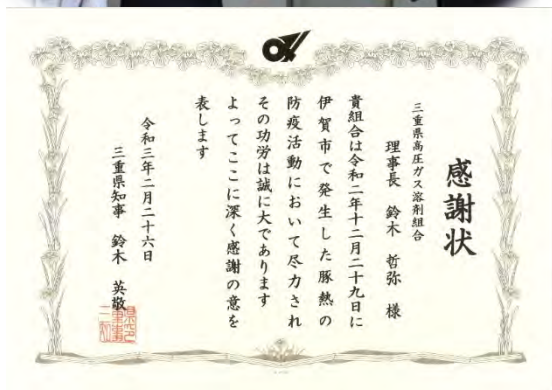 感謝状
三重県高圧ガス溶剤組合
理事長 鈴木 哲弥 様
貴組合は令和二年十二月二十九日に
伊賀市で発生した豚熱の
防疫活動において尽力され
その功労は誠に大であります
よってここに深く感謝の意を
表します
令和三年二月二十六日
三重県知事 鈴木 英敬